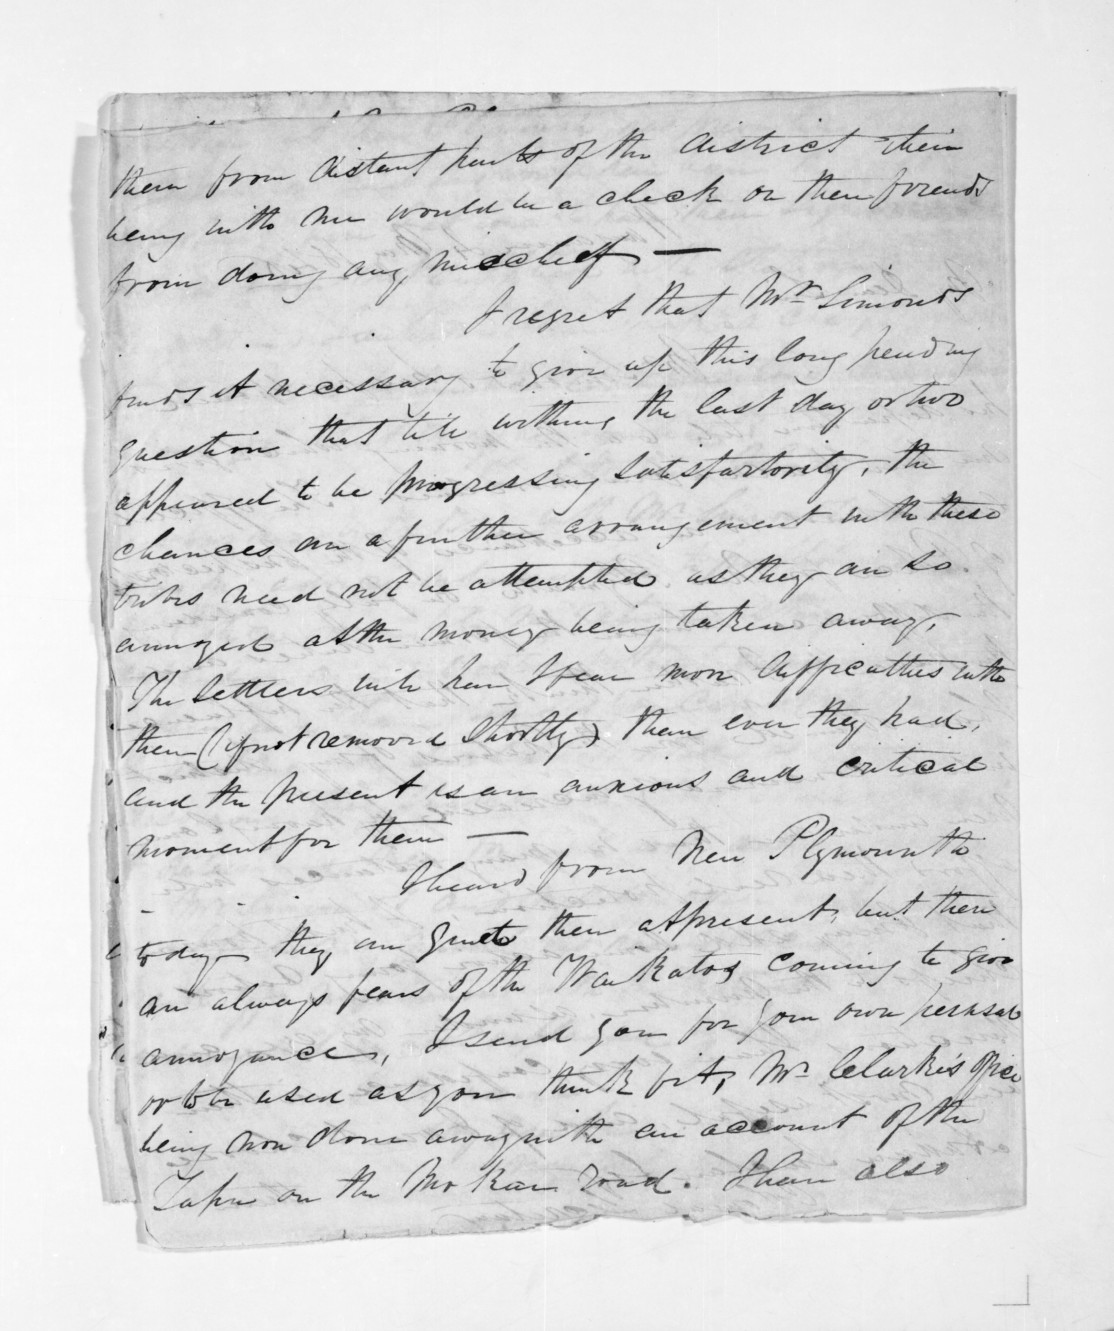 them from distant parts of the district their
being with me would be a check on their friends
from doing any mischief —
I regret that Mr Simonds
finds it necessary to give up this long pending
question that till withing the last day or two
appeared to be progressing satisfactorily, the
chances are a further arrangement with these
tribes need not be attempted as they are so
annoyed at the money being taken away,
The Settlers will have I fear more difficulties with
them (if not removed Shortly) than ever they had,
and the present is an anxious and critical
moment for them —
I heard from New Plymouth
today they are quiet there at present, but there
are always fears of the Waikatos coming to give
annoyance, I send you for your own perusal
or to be used as you think fit, Mr Clarke's office
being now done away with an account of the
Tapu on the Mokau road. I have also